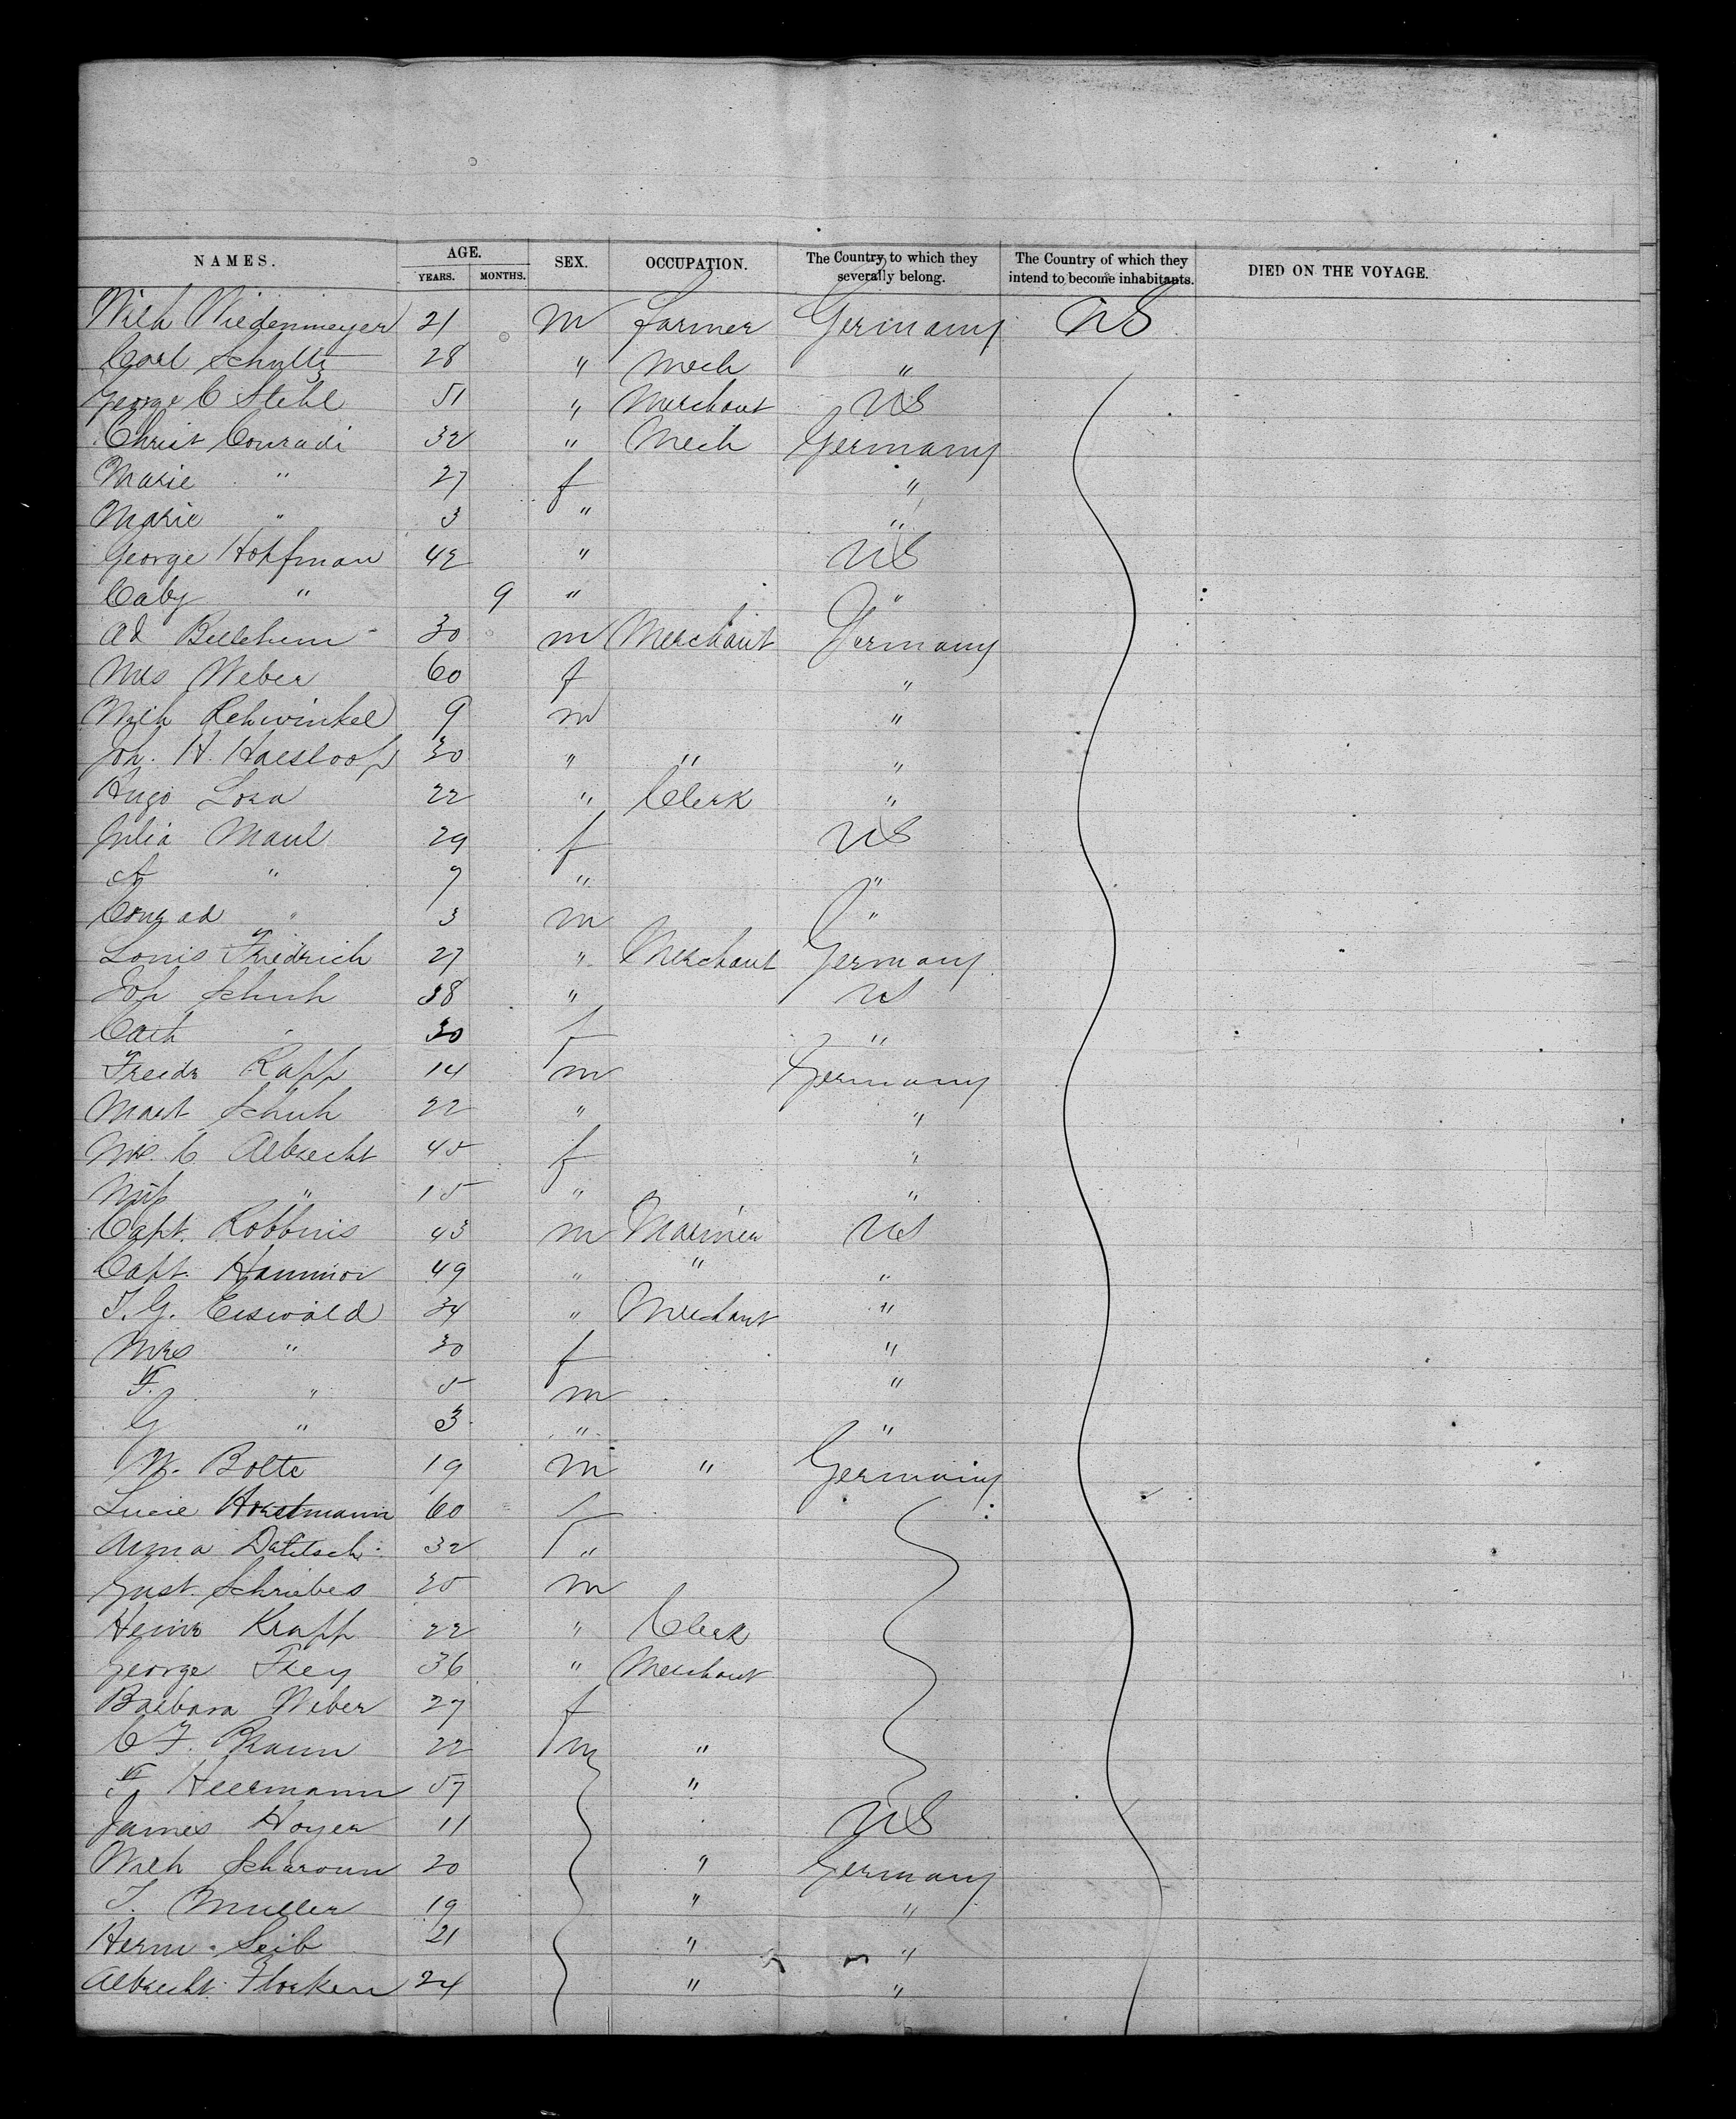 NAMES. AGE. YEARS. MONTHS. SEX. OCCUPATION. The Country to which they severally belong. The Country of which they intend to become inhabitants. DIED ON THE VOYAGE.
Wilh Wiedenmeyer 21 m farmer Germany US
Carl Schultz 28 " Mech "
George C Stehl 51 " Merchant US
Christ Conradi 32 " Mech Germany
Marie " 27 f "
Marie " 3 " "
George Hoffman 42 " US
Baby " 9 " "
Ad 30 m Merchant Germany
Mrs Weber 60 f "
Wilh Rehwinkel 9 m "
Joh. H. Haesloop 30 " " "
Hugo 22 " Clerk "
Julia Maul 29 f US
A " 7 " "
Conrad " 3 m "
Louis Friedrich 27 " Merchant Germany
Joh Schuh 38 " US
Cath " 30 f "
Friedr Rapp 14 m Germany
Mart Schuh 22 " "
Mrs. C Albrecht 45 f "
Miss " 15 " "
Capt. Robbins 43 m Mariner US
Capt. 49 " " "
T. G. Eiswald 34 " Merchant "
Mrs " 30 f "
F. " 5 m "
G " 3 " "
W. Bolte 19 m " Germany
Lucie Horstmann 60 f
Anna 32 "
Gust. 25 m
Heinr Krapp 22 " Clerk
George Frey 36 " Merchant
Barbara Weber 27 f
C F. Braun 22 m "
F Heermann 57 "
James Hoyer 11 US
Wilh Scharoun 20 " Germany
T. Muller 19 " "
Herm. Seib 21 " "
Albrecht Florken 24 " "